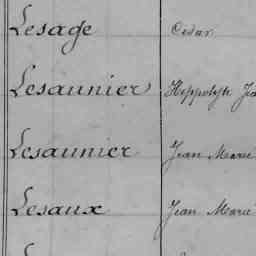 Lesage Cesar
Lesaunier Hippolyte
Lesaunier Jean Marie
Lesaux Jean Marie